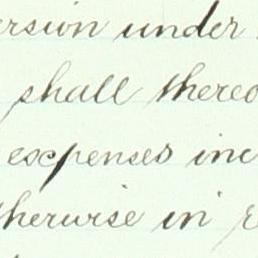 ersion under
shall thereo
expenses inc
therwise in r